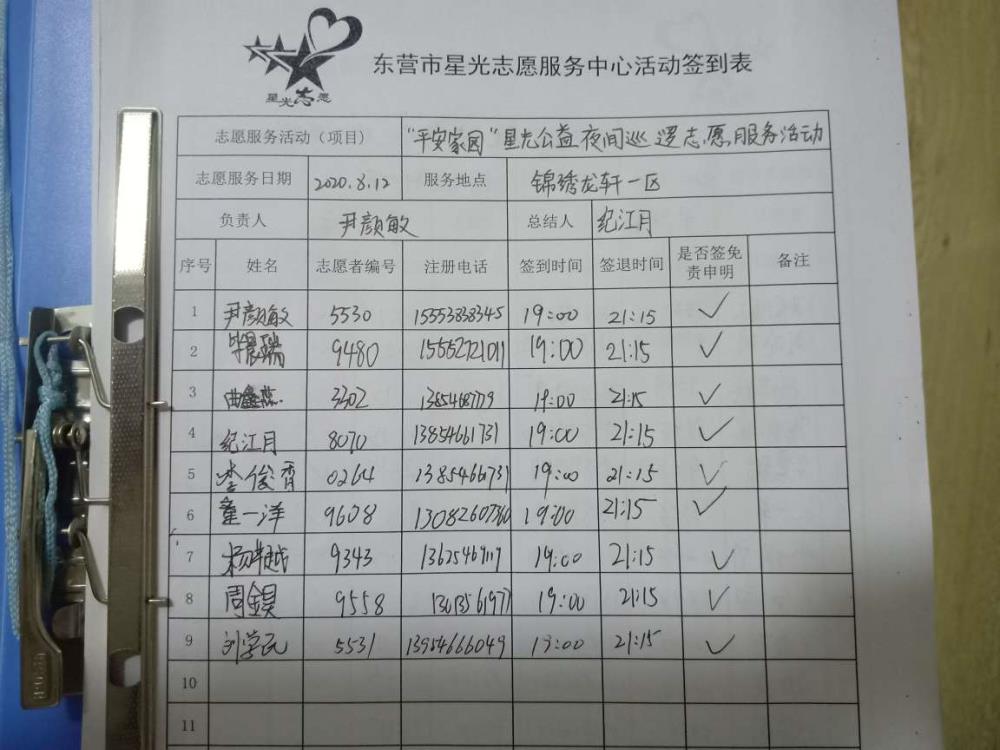 星光志愿
东营市星光志愿服务中心活动签到表
志愿服务活动（项目） “平安家园”星光公益夜间巡逻志愿服务活动
志愿服务日期 2020.8.12 服务地点 锦绣龙轩一区
负责人 尹颜敏 总结人 纪江月
序号 姓名 志愿者编号 注册电话 签到时间 签退时间 是否签免责申明 备注
1 尹颜敏 5530 15553838345 19:00 21:15 ✓
2 9480 15552721011 19:00 21:15 ✓
3 曲鑫燕 3302 19:00 21:15 ✓
4 纪江月 8070 13854661731 19:00 21:15 ✓
5 李俊霄 0264 13854661731 19:00 21:15 ✓
6 童一洋 9608 19:00 21:15 ✓
7 9343 19:00 21:15 ✓
8 周錤 9558 19:00 21:15 ✓
9 刘学民 5531 13954666049 19:00 21:15 ✓
10
11